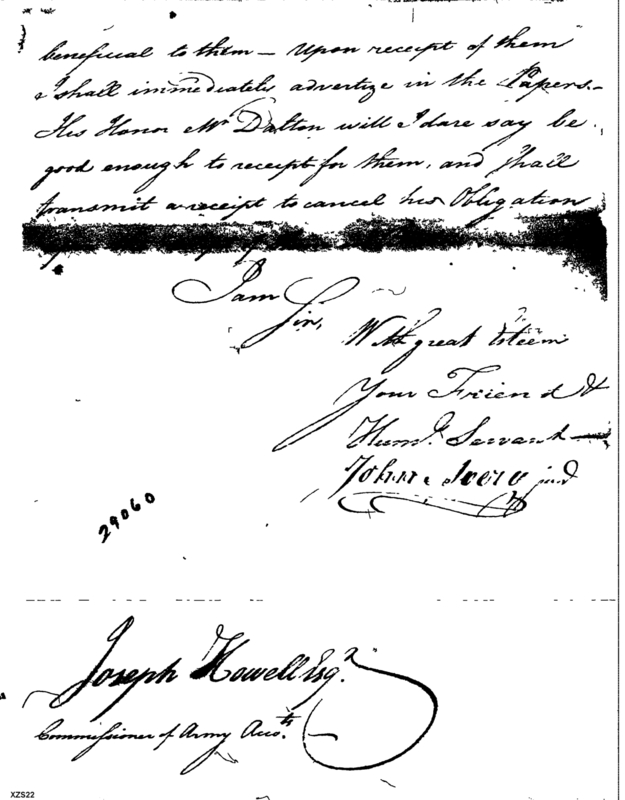 beneficial to them — Upon receipt of them
I shall immediately advertize in the Papers.—
His Honor Mr Dalton will I dare say be
good enough to receipt for them, and shall
transmit a receipt to cancel his Obligation
I am
Sir,
With great Esteem
Your Friend &
Huml. Servant —
John Avery jund
29060
Joseph Howell Esqr.
Commissioner of Army Accots. —
XZS22